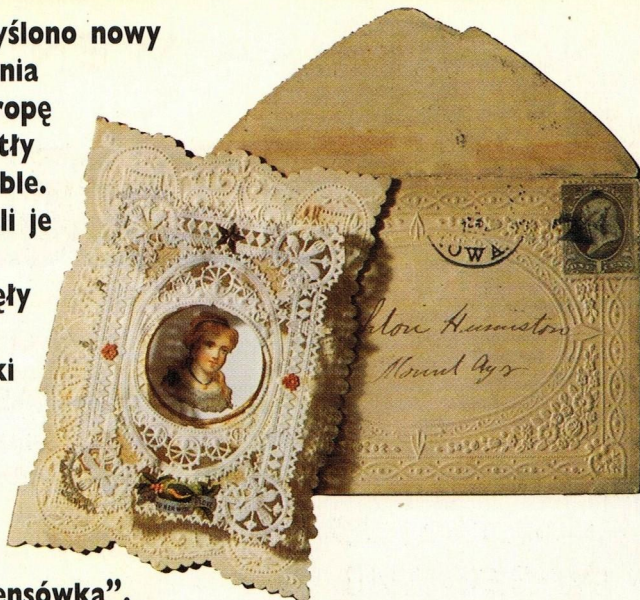 yślono nowy
nia
ropę
tły
ble.
li je
ęły
ki
ensówka”.
OWA
Humiston
Mount Ayr